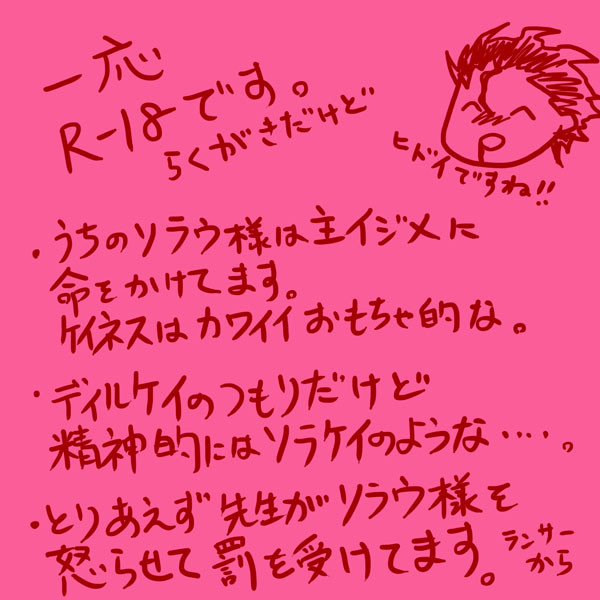 一応
R-18です。
らくがきだけど
ヒドイですね!!
・うちのソラウ様は主イジメに
命をかけてます。
ケイネスはカワイイおもちゃ的な。
・ディルケイのつもりだけど
精神的にはソラケイのような…。
・とりあえず先生がソラウ様を
怒らせて罰を受けてます。ランサー
から